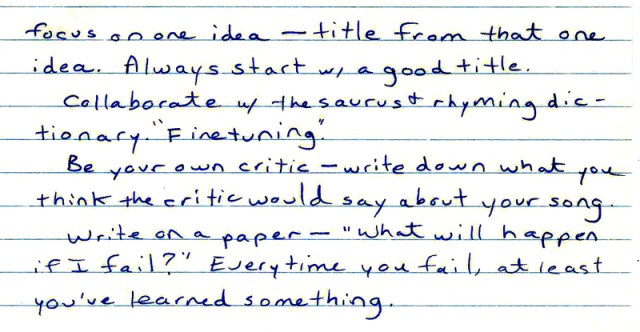 focus on one idea — title from that one
idea. Always start w/ a good title.
Collaborate w/ thesaurus & rhyming dic-
tionary. "Finetuning".
Be your own critic — write down what you
think the critic would say about your song.
Write on a paper — "What will happen
if I fail?" Everytime you fail, at least
you've learned something.